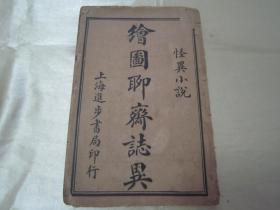 怪異小說
繪圖聊齋誌異
上海進步書局印行